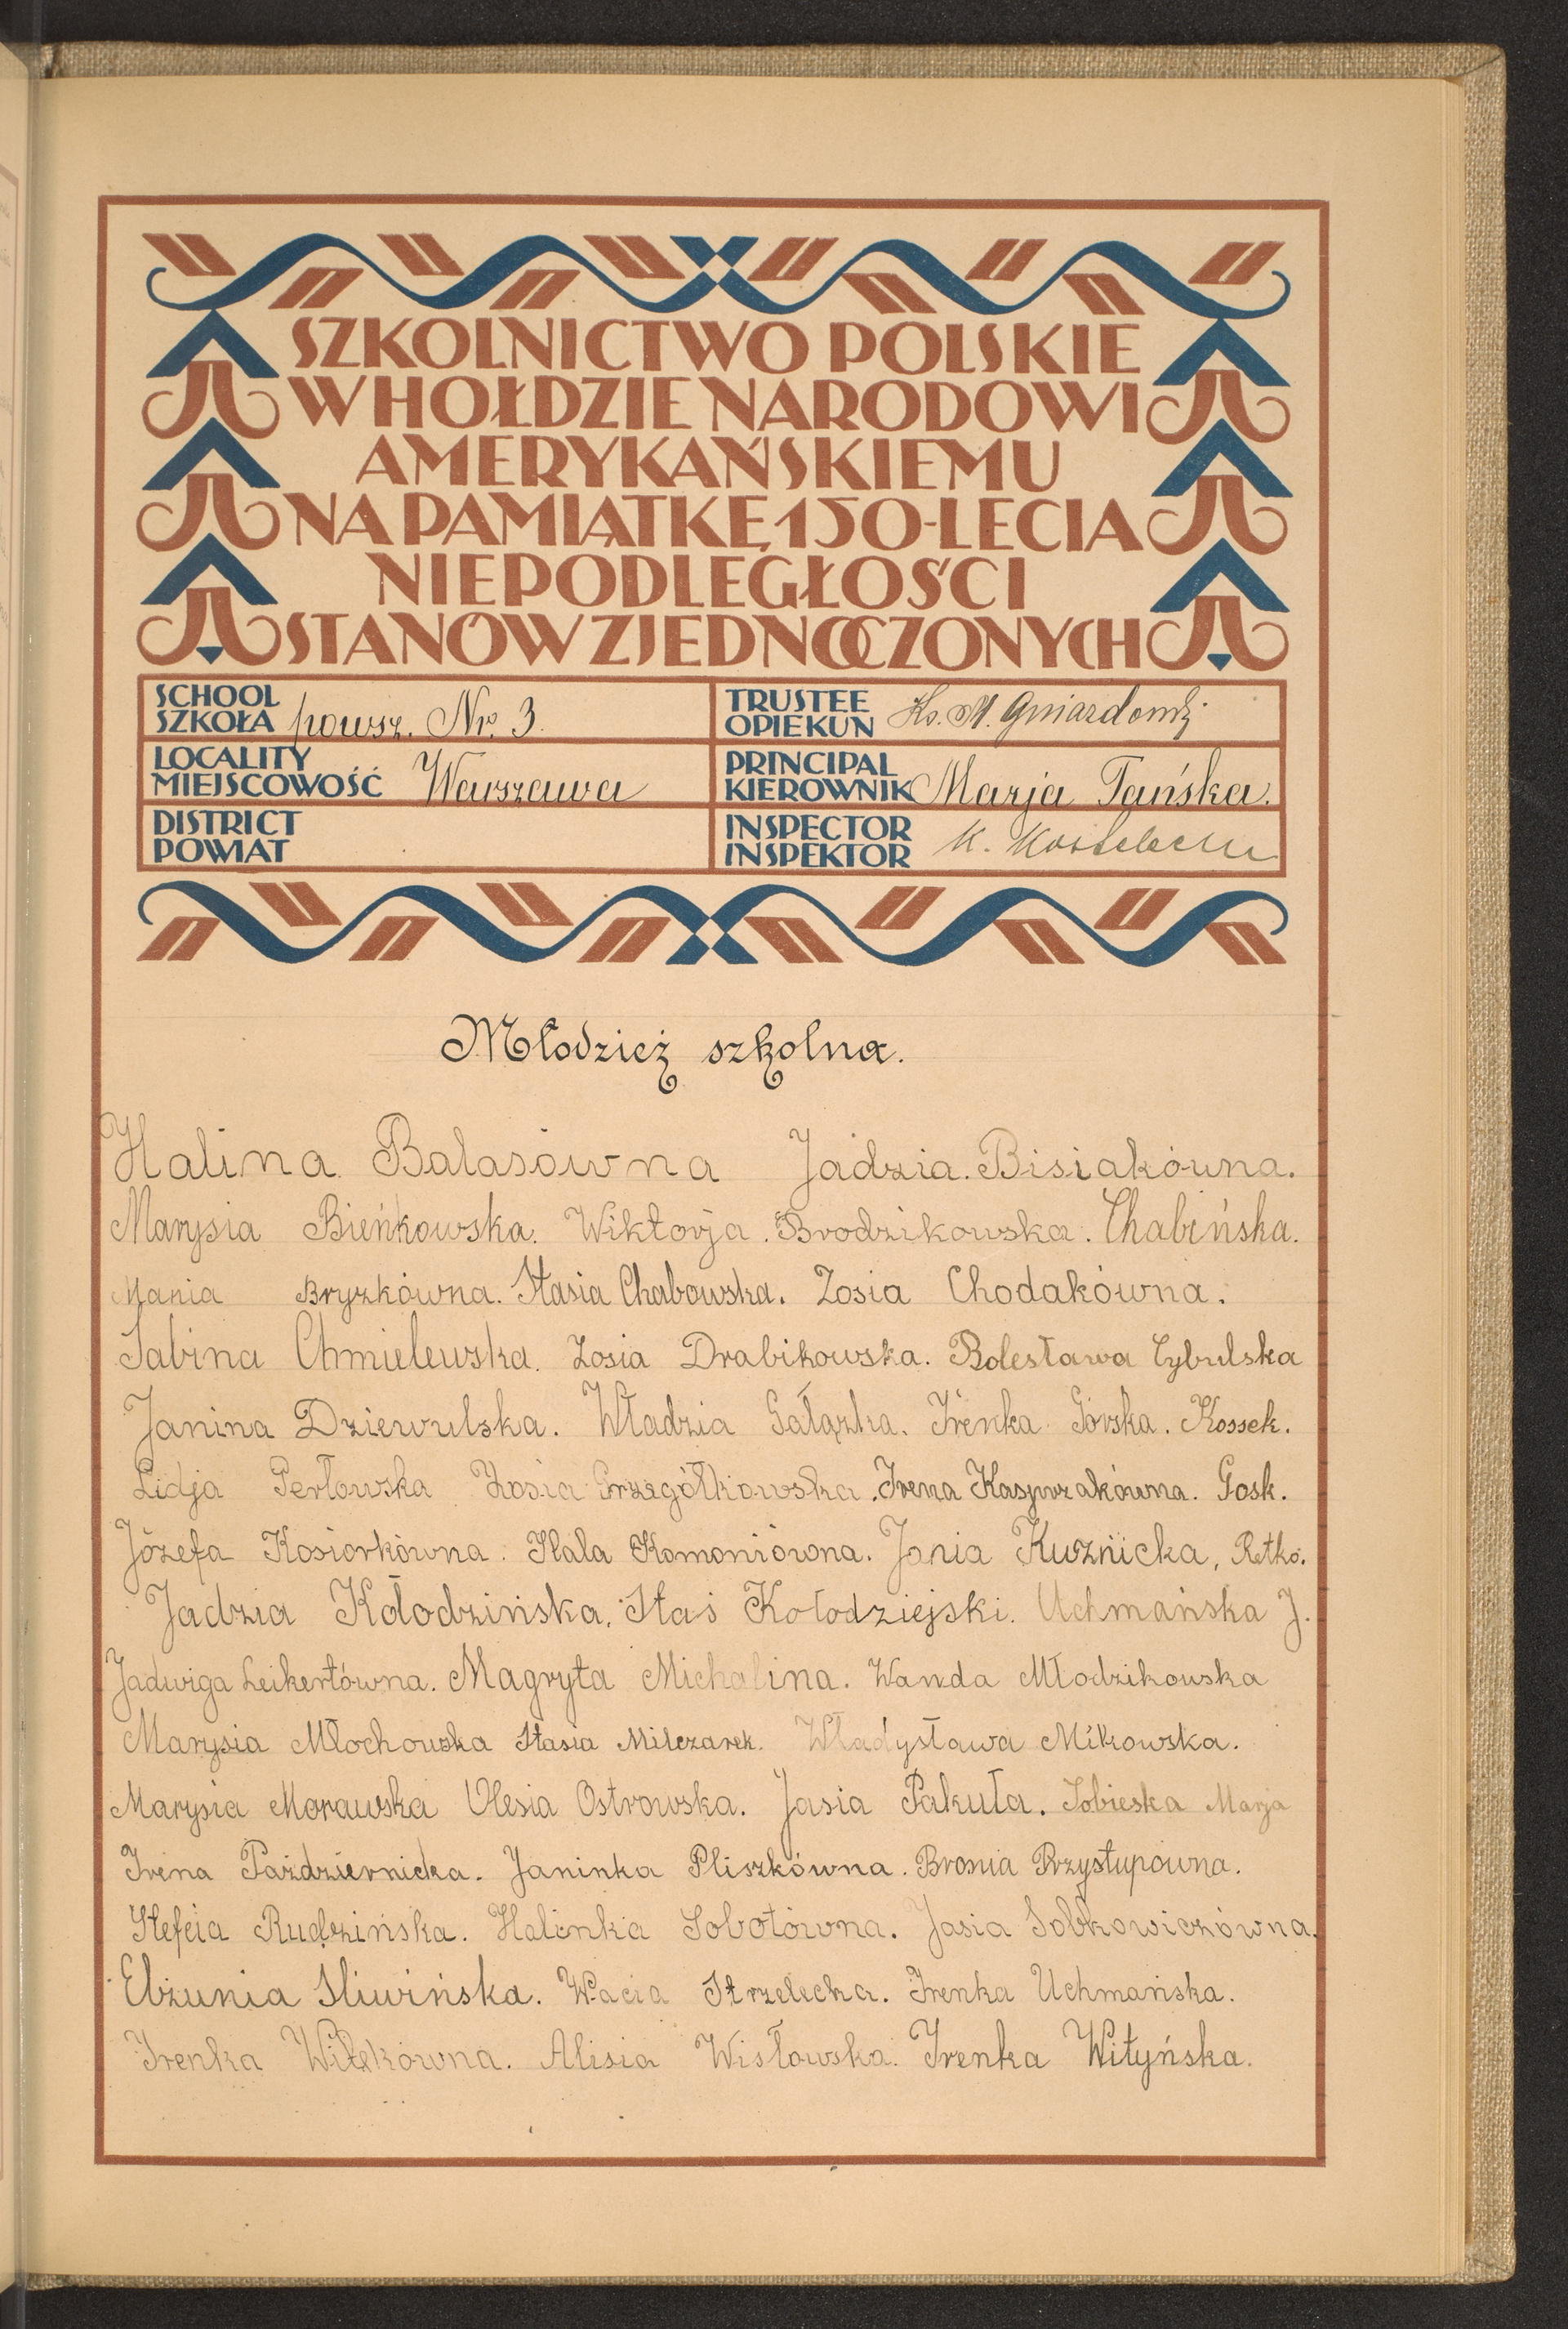 SZKOLNICTWO POLSKIE
W HOŁDZIE NARODOWI
AMERYKAŃSKIEMU
NA PAMIĄTKĘ 150-LECIA
NIEPODLEGŁOŚCI
STANÓW ZJEDNOCZONYCH
SCHOOL
SZKOŁA powsz. Nr. 3.
TRUSTEE
OPIEKUN Ks. M.
LOCALITY
MIEJSCOWOŚĆ Warszawa
PRINCIPAL
KIEROWNIK Marja Tańska.
DISTRICT
POWIAT
INSPECTOR
INSPEKTOR K.
Młodzież szkolna.
Halina Balasówna Jadzia. Bisiakówna.
Marysia Bieńkowska. Wiktorja. Brodzikowska. Chabińska.
Mania Bryzkówna. Stasia Chabowska. Zosia Chodakówna.
Sabina Chmielewska. Zosia Drabikowska. Bolesława Cybulska
Janina Dziewulska. Władzia Gałązka. Irenka Górska. Kossek.
Lidja Perłowska Zosia Grzegółkowska. Irena Kasprzakówna. Gosk.
Józefa Kosiorkówna. Hala Komoniówna. Jania Kuźnicka, Retko.
Jadzia Kołodzińska. Staś Kołodziejski. Uchmańska J.
Jadwiga Leikertówna. Magryta Michalina. Wanda Młodzikowska
Marysia Młochowska Stasia Milczarek. Władysława Mikowska.
Marysia Morawska Olesia Ostrowska. Jasia Pakuła. Sobieska Marja
Irena Październicka. Janinka Pliszkówna. Bronia Przystupówna.
Stefcia Rudzińska. Halinka Sobotówna. Jasia Sobkowiczówna.
Elżunia Sliwińska. Wacia Strzelecka. Irenka Uchmańska.
Irenka Witekówna. Alisia Wisłowska. Irenka Wityńska.